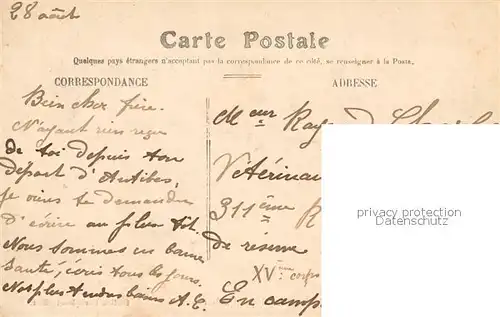 28 août
Carte Postale
Quelques pays étrangers n'acceptant pas la correspondance de ce côté, se renseigner à la Poste.
CORRESPONDANCE
Bien cher frère.
N'ayant rien reçu
de toi depuis ton
départ d'Antibes,
je viens te demander
d'écrire au plus tôt.
Nous sommes en bonne
santé, écris tous les jours.
Nos plus tendres baisers A.C.
ADRESSE
Mr
Vétérinai
311ème R
de réserve
XVème corps
En camp
privacy protection
www.ansichtskarten-center.de